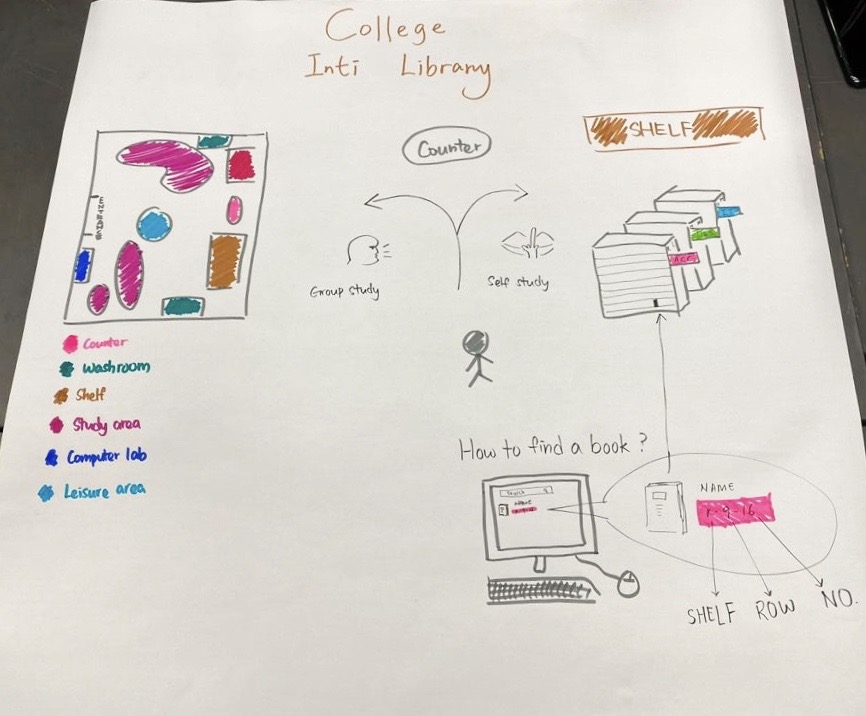 College
Inti Library
Counter
SHELF
Group study
Self study
Counter
Washroom
Shelf
Study area
Computer lab
Leisure area
How to find a book?
NAME
NAME
SHELF ROW NO.